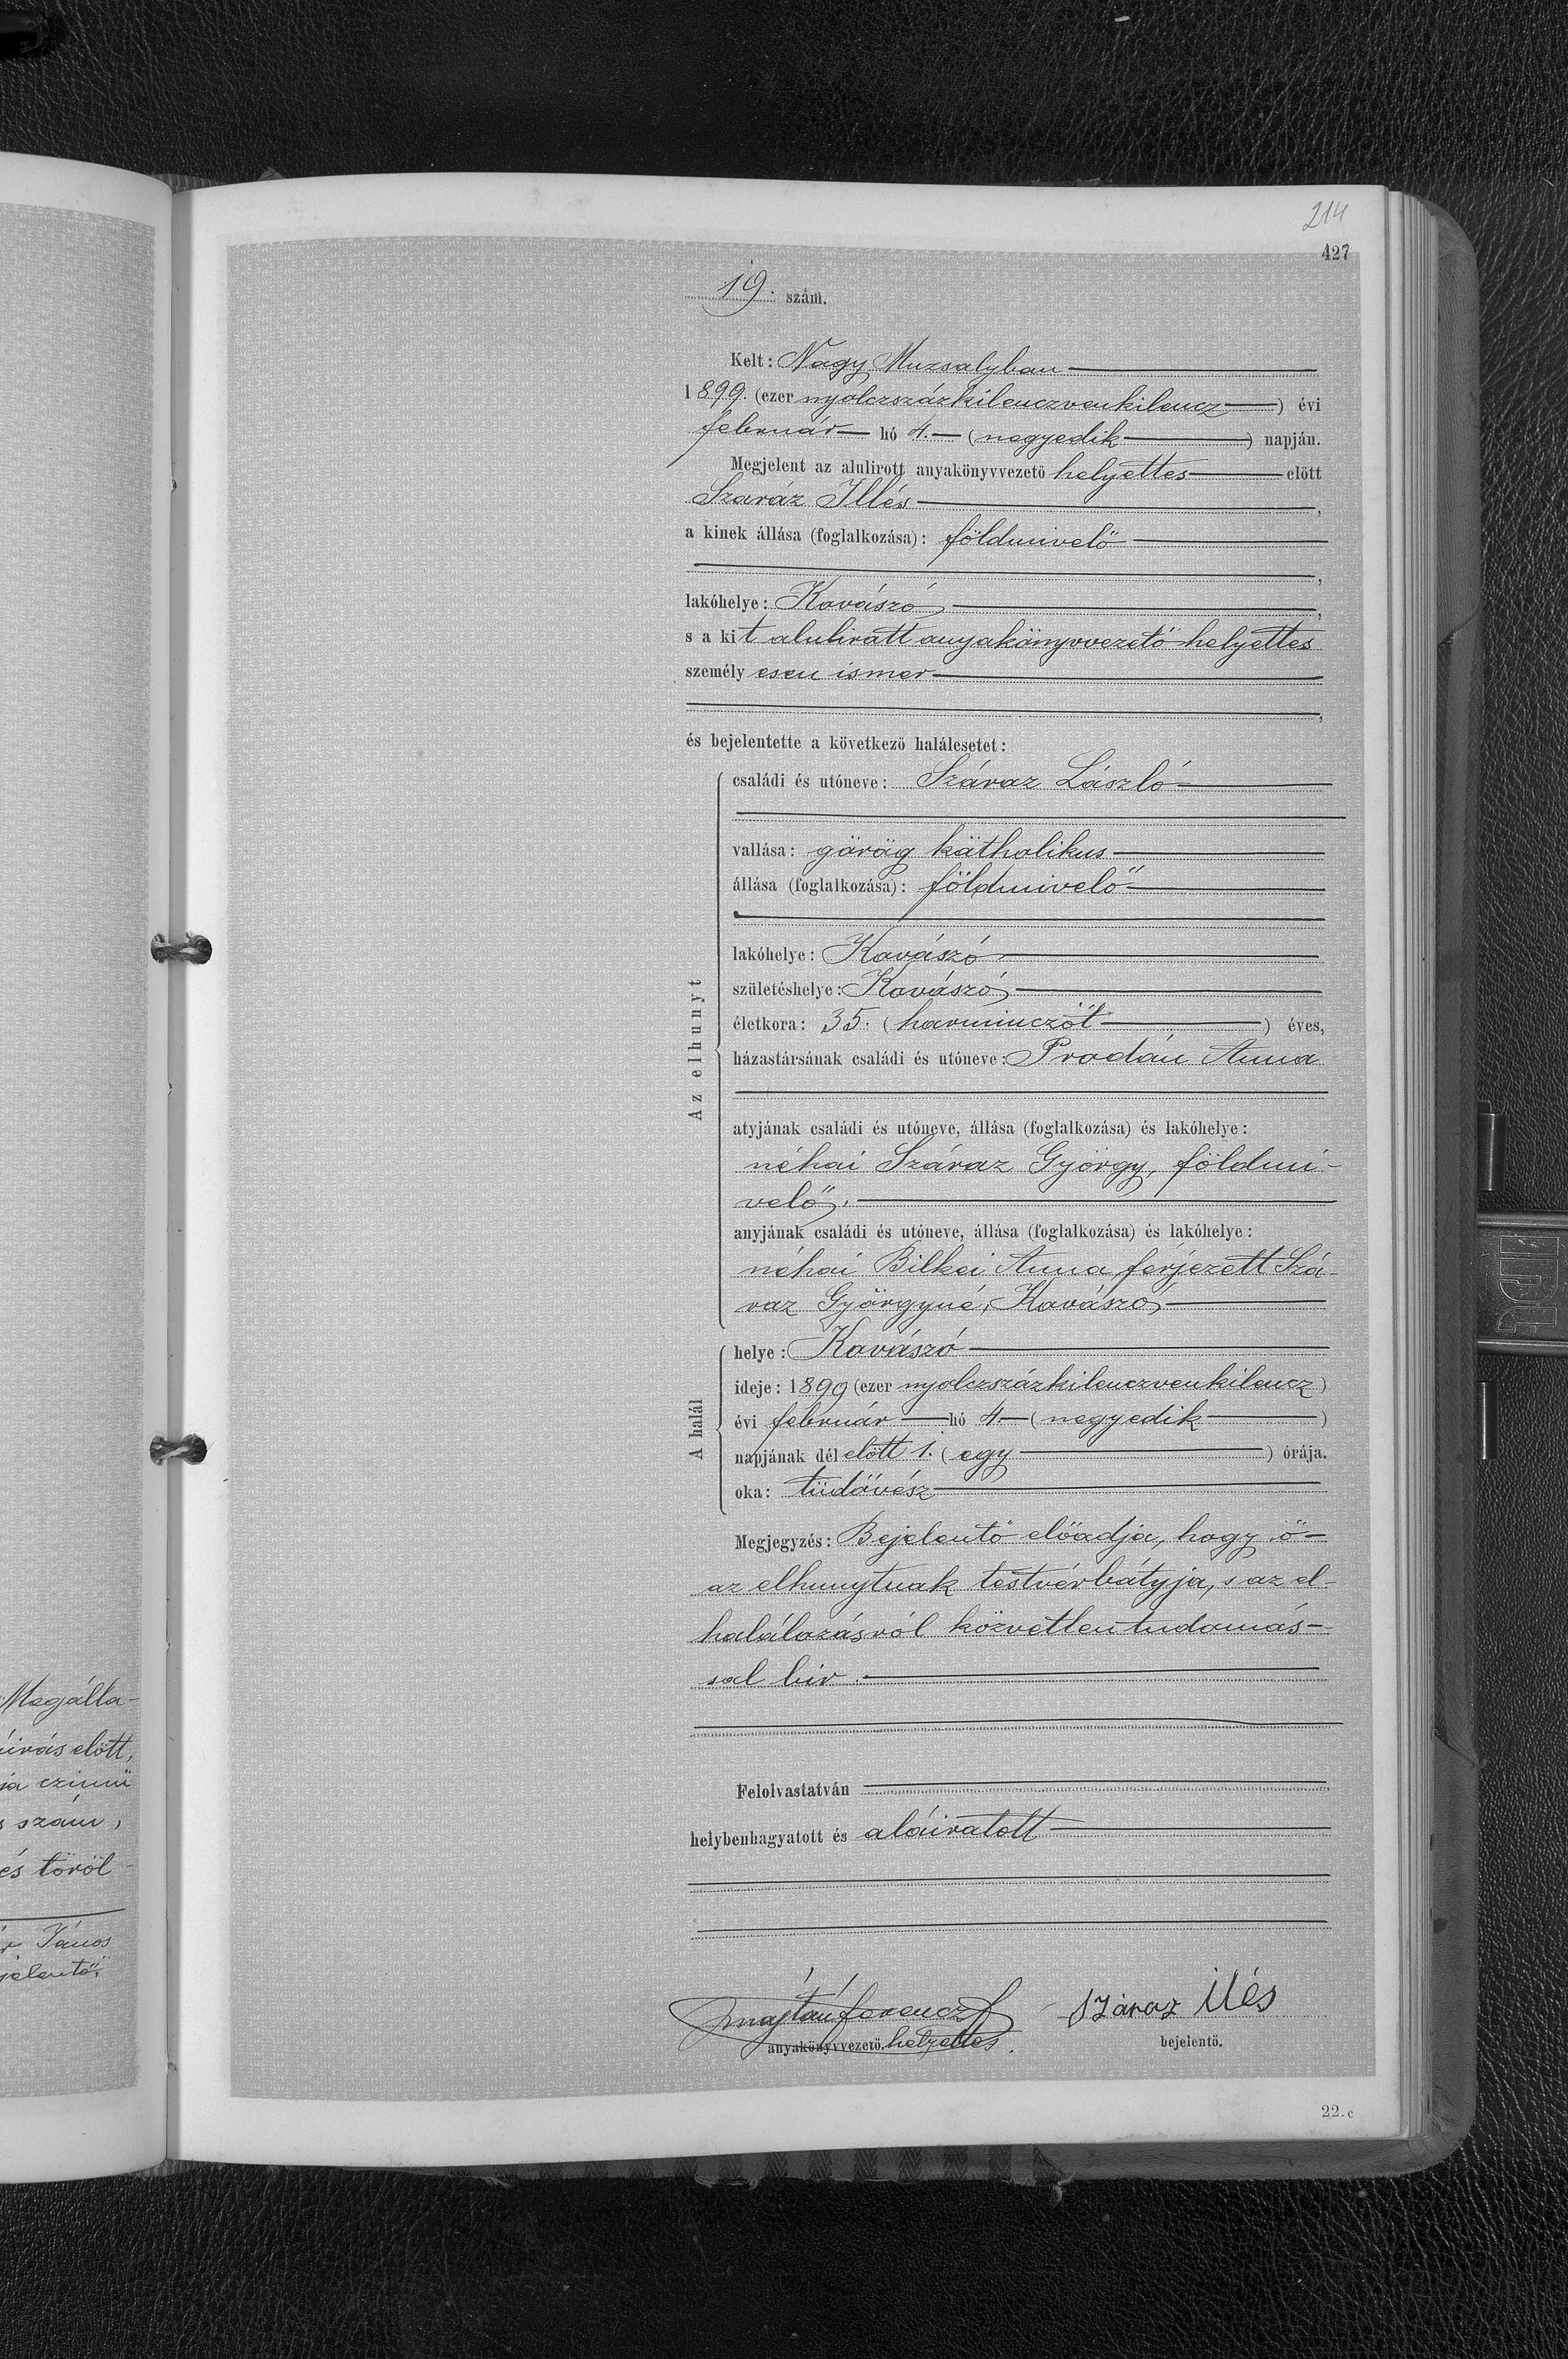 214
427
19. szám.
Kelt: Nagy Muzsalyban
1899. (ezer nyolczszázkilenczvenkilencz) évi
február hó 4. (negyedik) napján.
Megjelent az alulirott anyakönyvvezető helyettes előtt
Szaráz Illés,
a kinek állása (foglalkozása): földmivelő
,
lakóhelye: Kovászó,
s a kit alulirott anyakönyvvezető helyettes
személyesen ismer
,
és bejelentette a következő halálesetet:
Az elhunyt
családi és utóneve: Száraz László
vallása: görög katholikus
állása (foglalkozása): földmivelő
lakóhelye: Kovászó
születéshelye: Kovászó
életkora: 35. (harminczöt) éves,
házastársának családi és utóneve: Prodán Anna
atyjának családi és utóneve, állása (foglalkozása) és lakóhelye:
néhai Száraz György, földmi-
velő.
anyjának családi és utóneve, állása (foglalkozása) és lakóhelye:
néhai Bilkei Anna férjezett Szá-
raz Györgyné, Kovászó
A halál
helye: Kovászó
ideje: 1899 (ezer nyolczszázkilenczvenkilencz)
évi február hó 4 (negyedik)
napjának délelőtt 1. (egy) órája.
oka: tüdővész
Megjegyzés: Bejelentő előadja, hogy ő
az elhunytnak testvérbátyja, s az el-
halálozásról közvetlen tudomás-
sal bir.
Felolvastatván
helybenhagyatott és aláiratott
Majtán Ferencz
anyakönyvvezető. helyettes.
Száraz Ilés
bejelentő.
22. c
Megálla-
áirás előtt,
ja czimü
s szám,
és töröl-
János
jelentő.